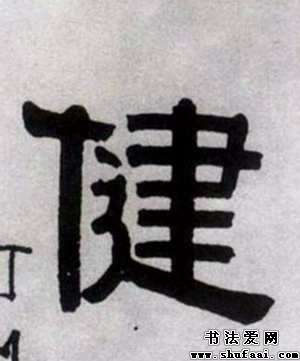 健
书法爱网
www.shufaai.com